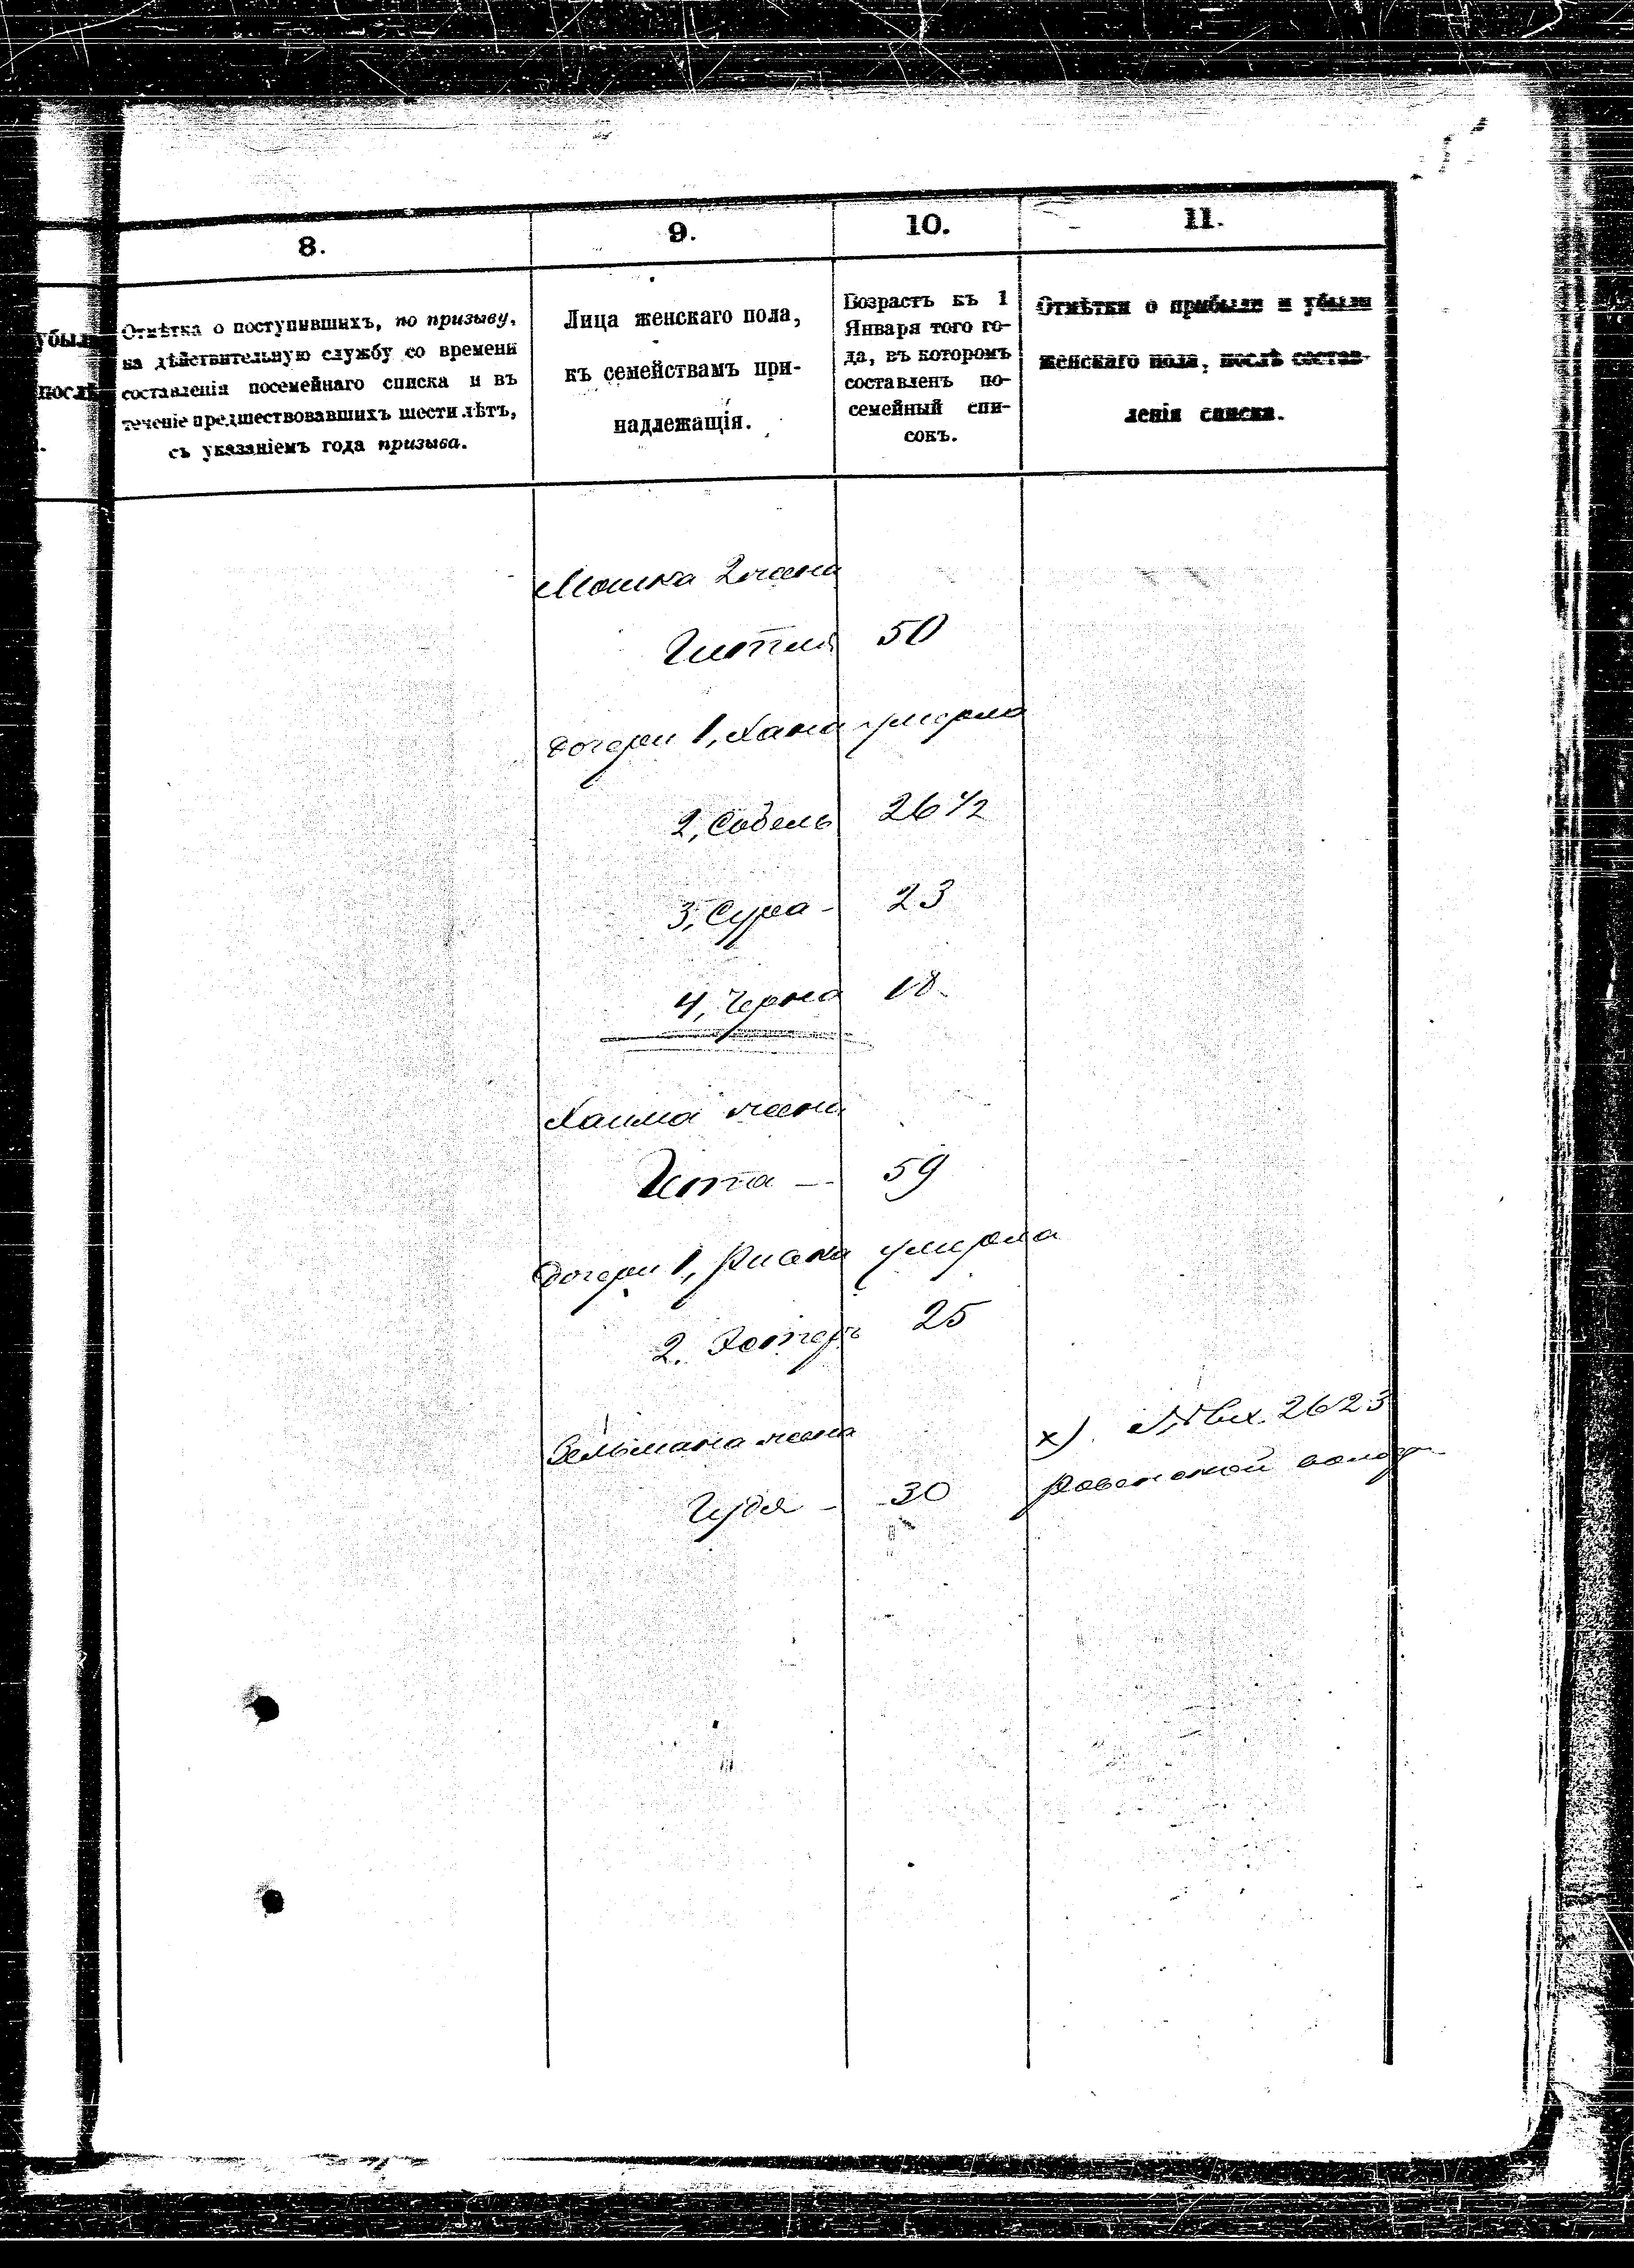 8.
9.
10.
11.
убыли
послѣ
Отмѣтка о поступившихъ, по призыву,
на дѣйствительную службу со времени
составленія посемейнаго списка и въ
теченіе предшествовавшихъ шести лѣтъ,
съ указаніемъ года призыва.
Лица женскаго пола,
къ семействамъ при-
надлежащія.
Возрастъ къ 1
Января того го-
да, въ которомъ
составленъ по-
семейный спи-
сокъ.
Отмѣтки о прибыли и убыли
женскаго пола, послѣ состав-
ленія списка.
Мошка 2 жена
Гитля 50
Дочери 1, Хана умерла
2, Собель 26 1/2
3, Сура - 23
4, Черна 18
Хаима жена
Ита — 59
Дочери 1, умерла
2. Эстеръ 25
Зельмана жена
Гудя - 30
х). вх. 2623